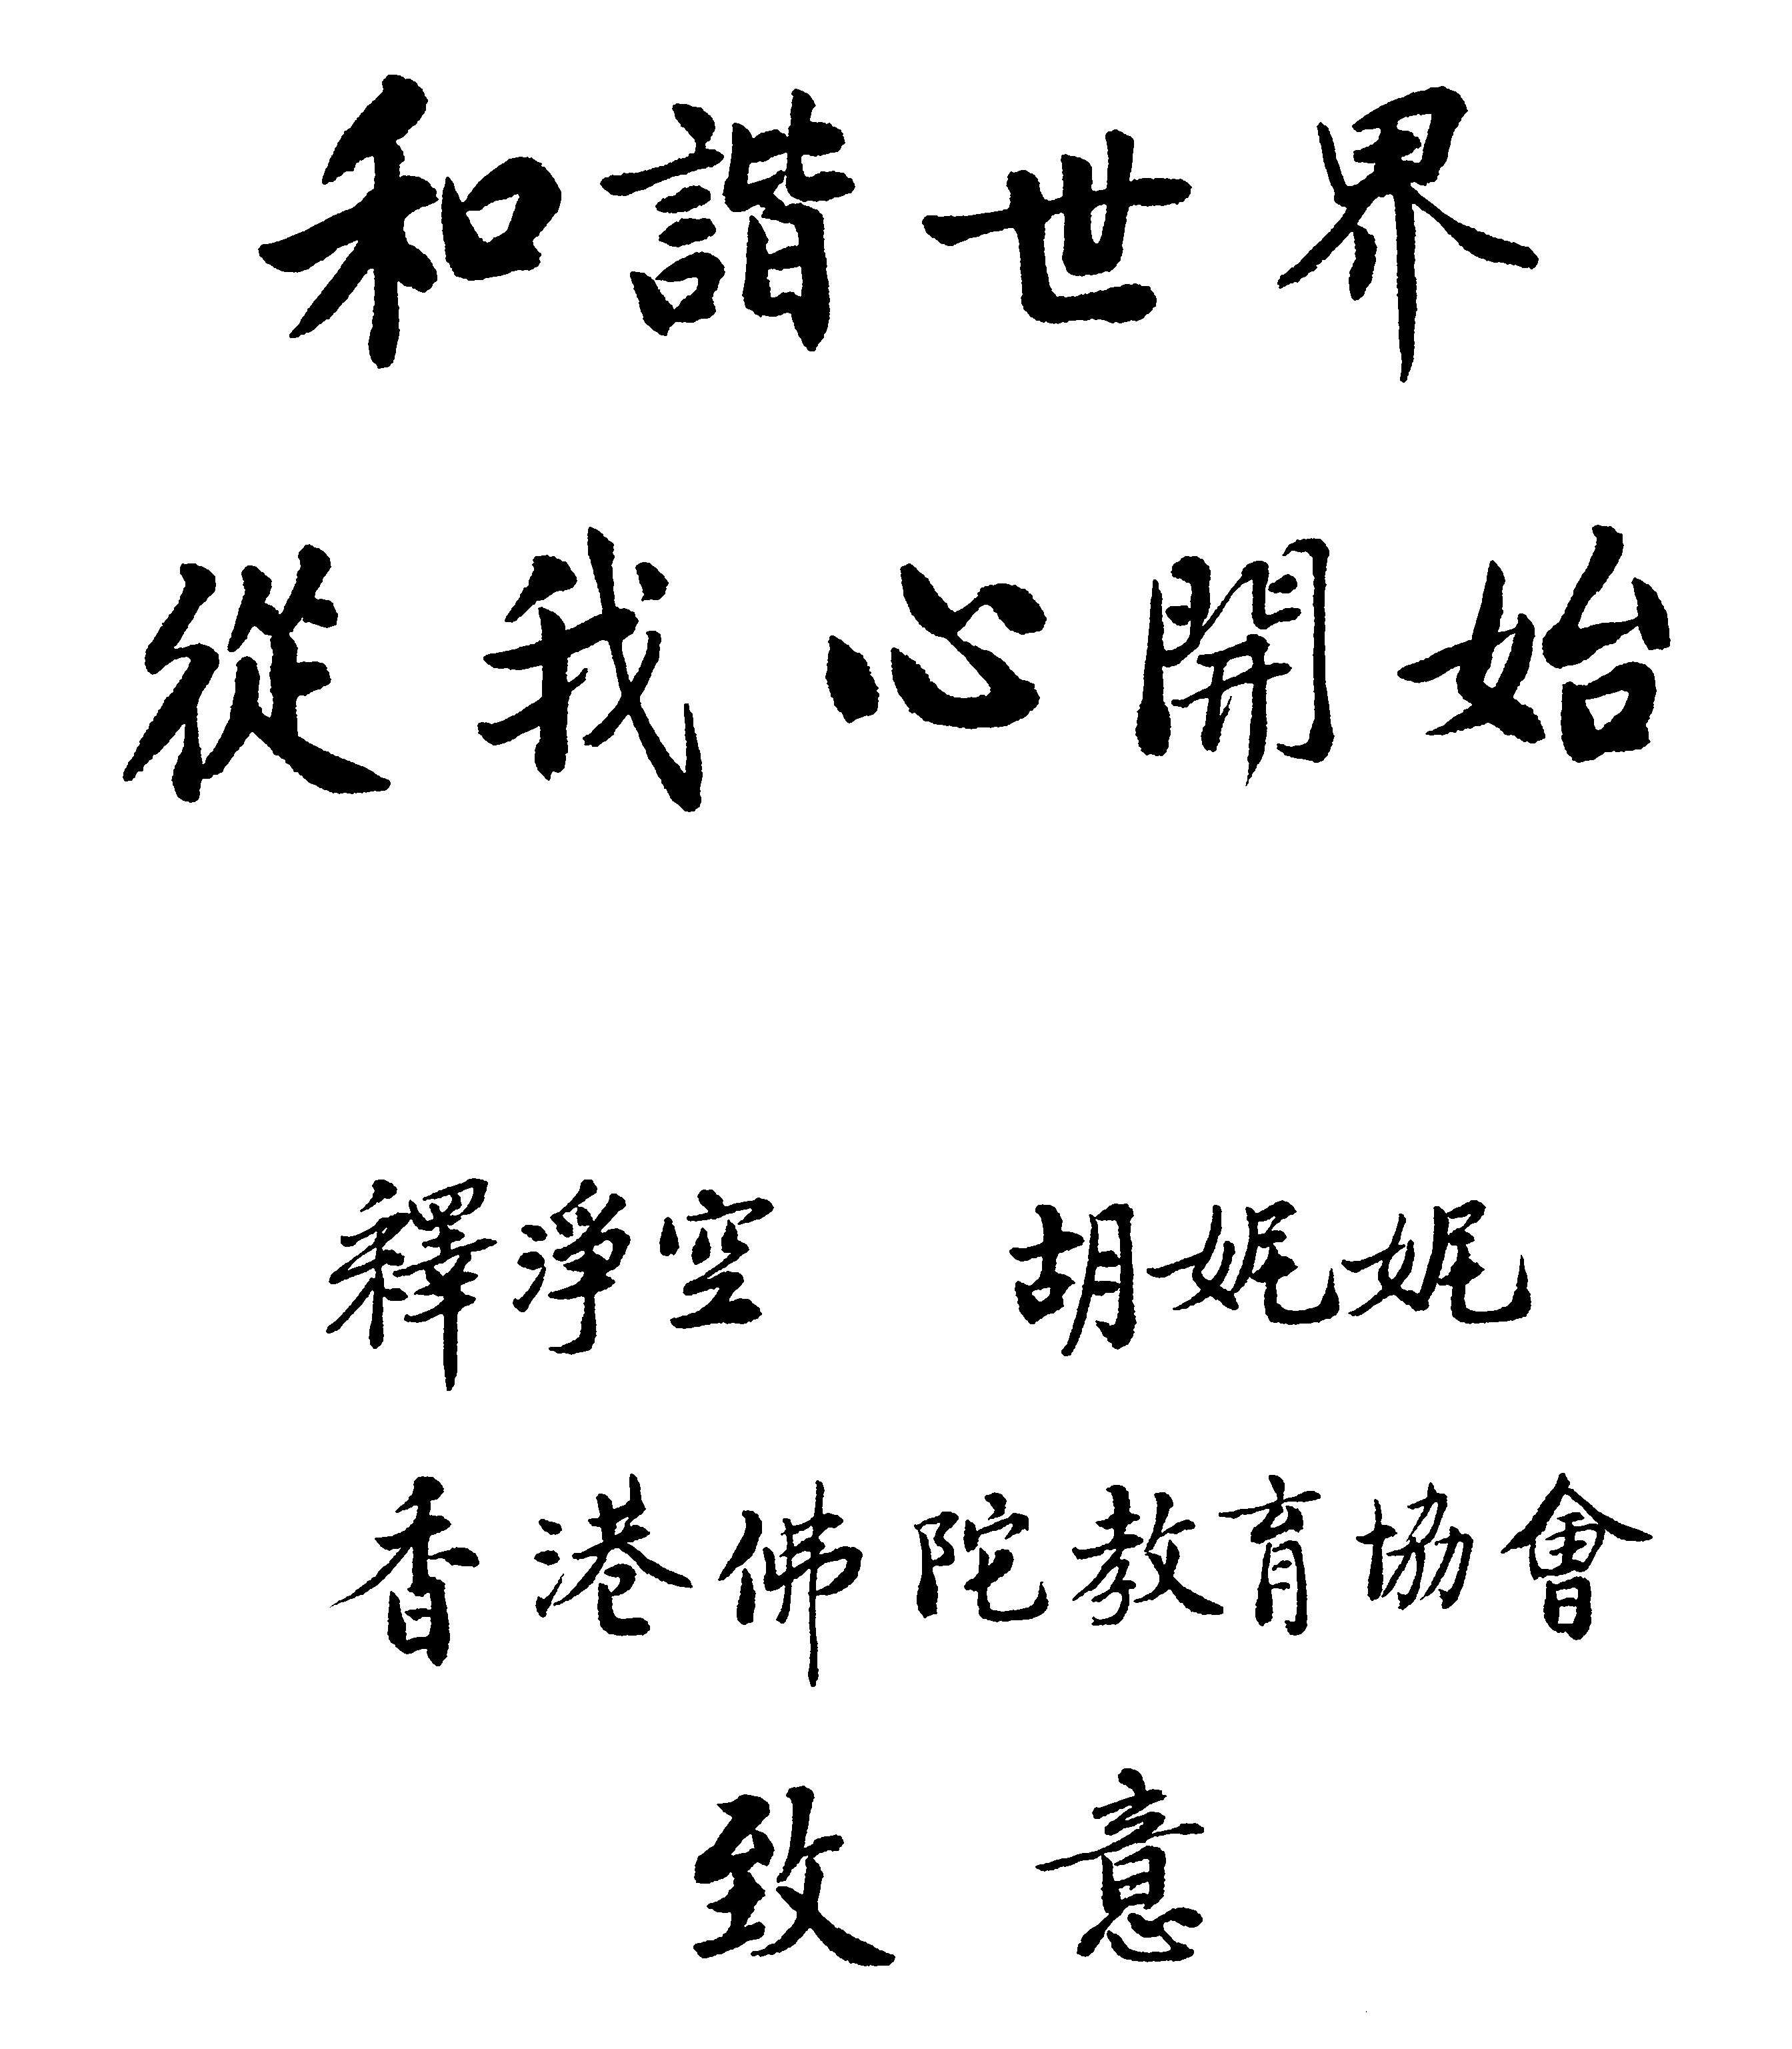 和諧世界
從我心開始
釋淨空 胡妮妮
香港佛陀教育協會
致意